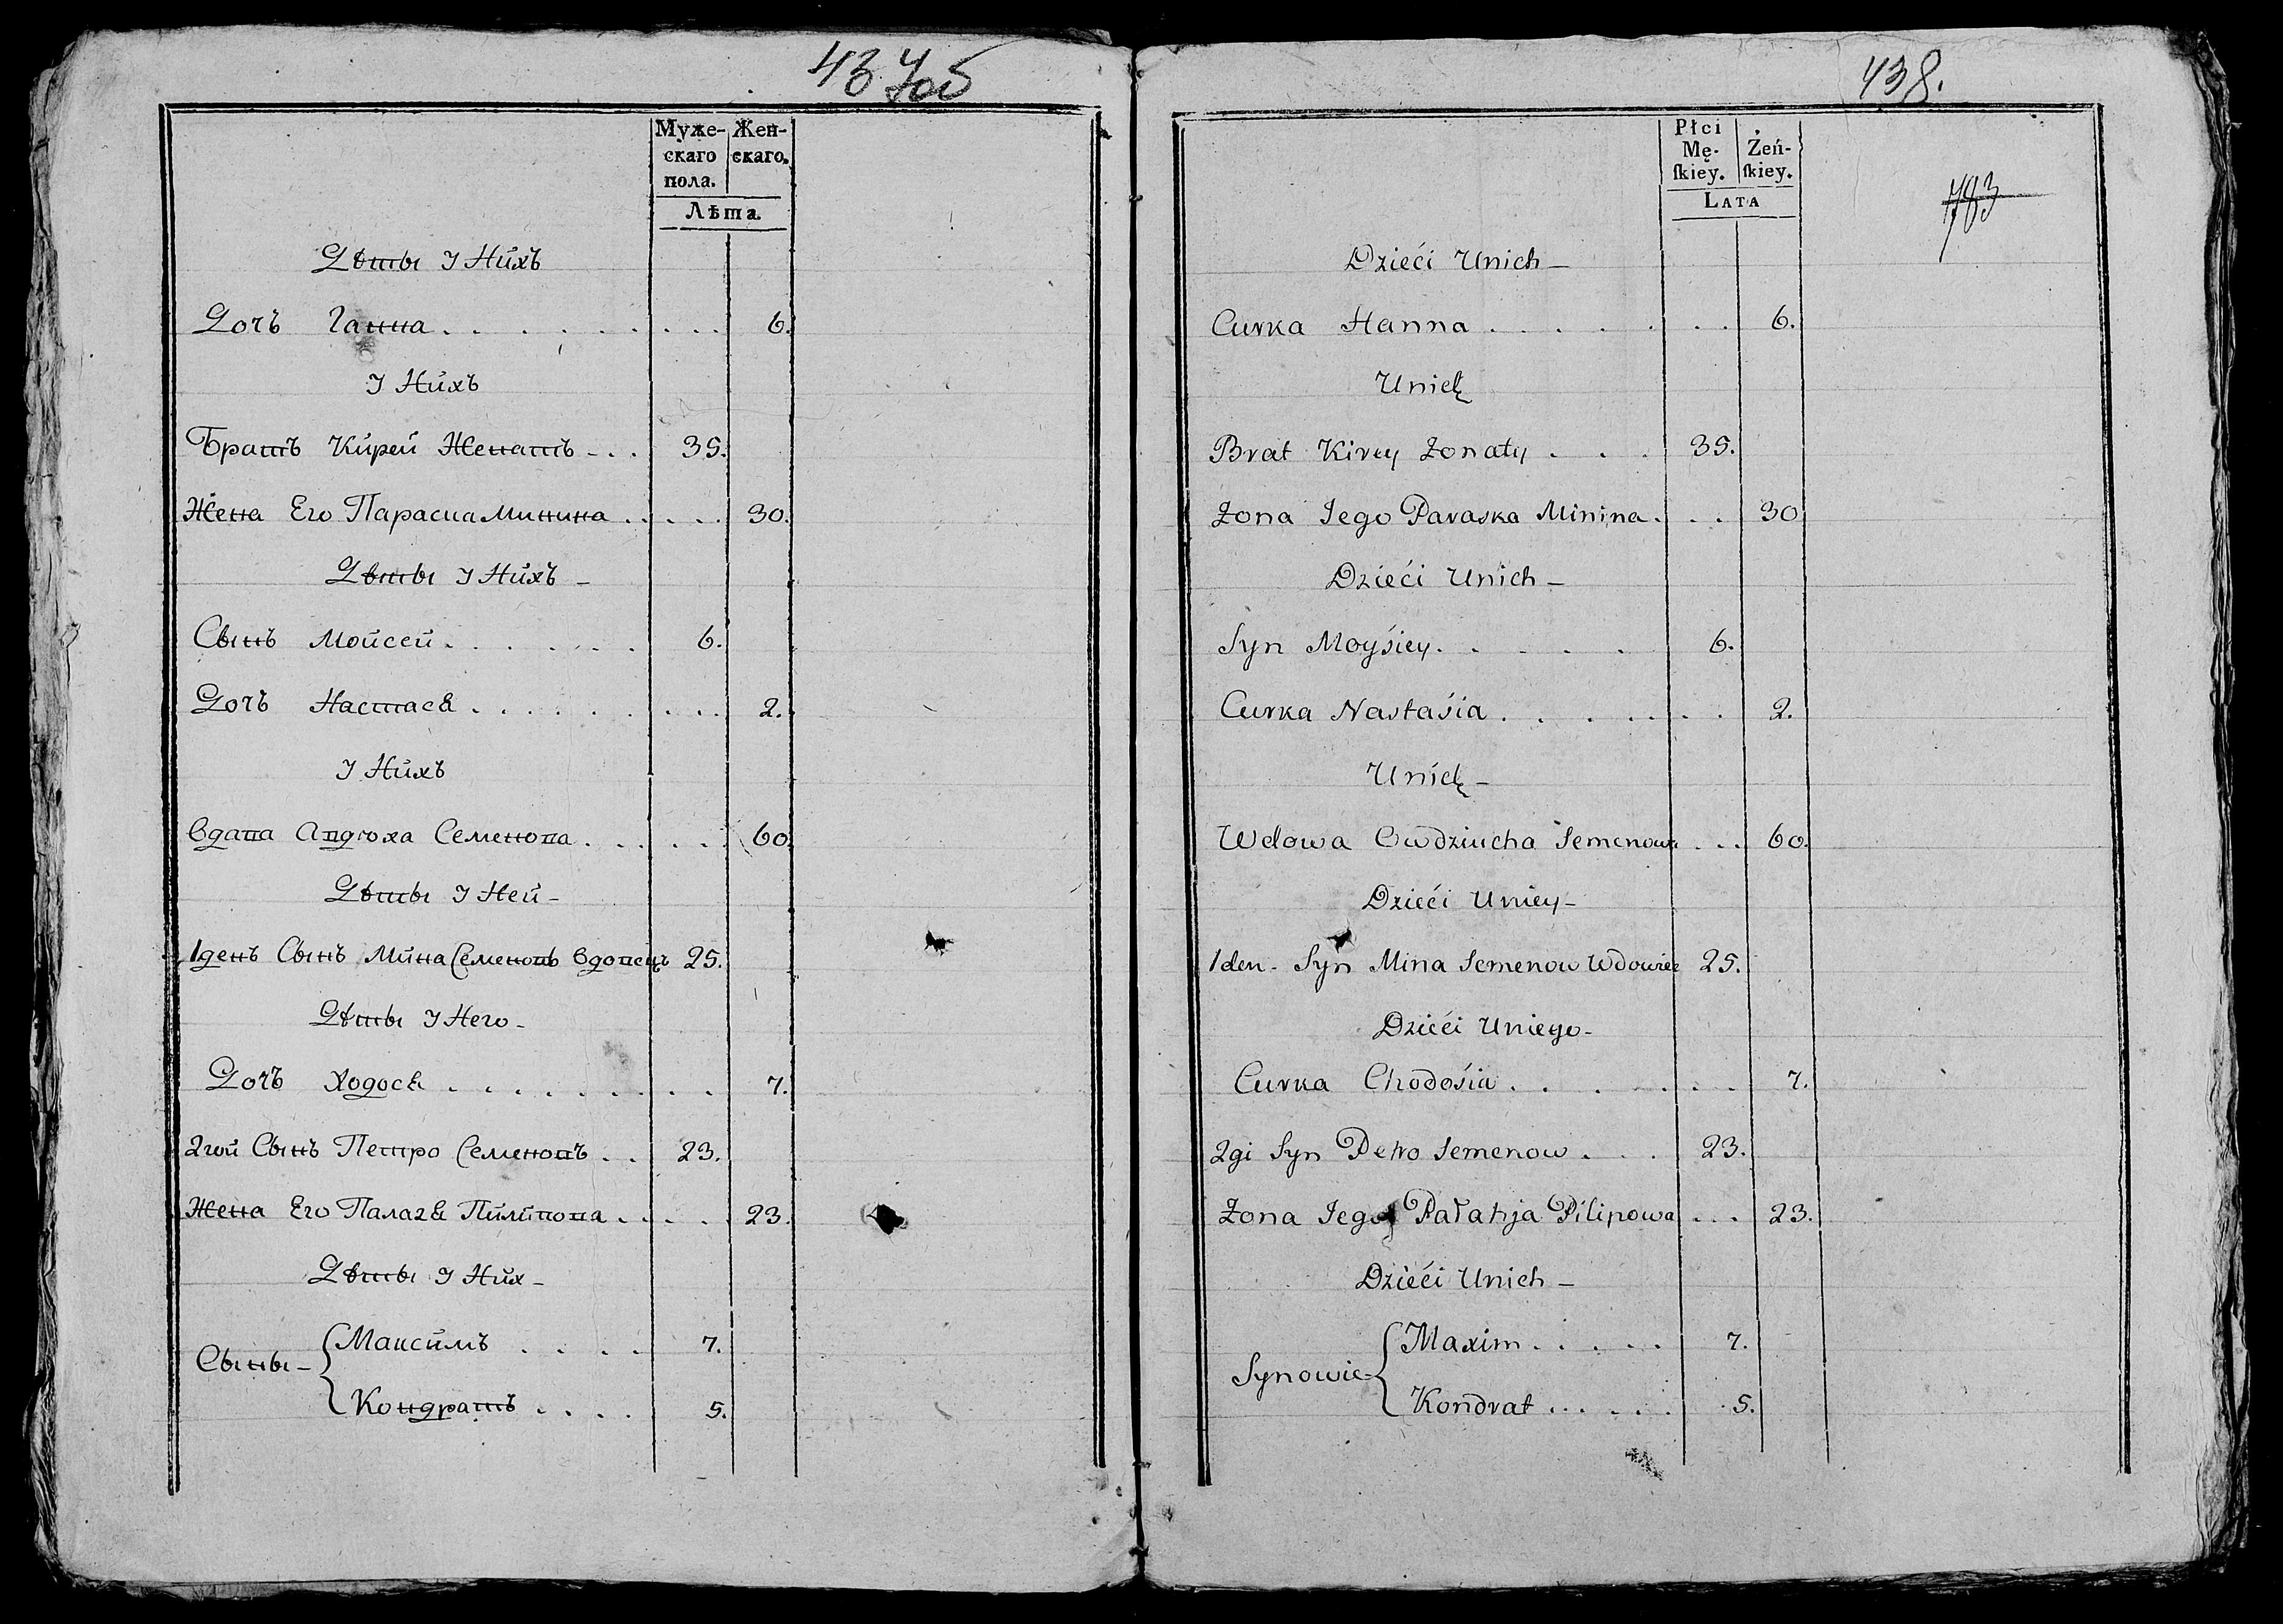 437об
Муже-
скаго
пола.
Жен-
скаго.
Лѣта.
Дѣты У Нихъ
Дочъ Ганна . . . . . . . . 6.
У Нихъ
Братъ Кирей Женатъ - . . 35.
Жена Его Параска Минина . . . . . 30.
Дѣты У Нихъ -
Сынъ Мойсей . . . . . . 6.
Дочъ Настасѣ . . . . . . . . 2.
У Нихъ
Вдава Авдюха Семенова . . . . . 60.
Дѣты У Ней -
1денъ Сынъ Мина Семеновъ Вдовецъ 25.
Дѣты У Него -
Дочъ Ходосѣ . . . . . . . . 7.
2гой Сынъ Петро Семеновъ . . 23.
Жена Его Палагѣ Пилипова . . . . 23.
Дѣты У Них -
Сыны - { Максимъ . . . . 7.
Кондратъ . . . . 5.
438.
783
Płci
Mę-
ſkiey.
Żeń-
ſkiey.
LATA
Dzieći Unich -
Curka Hanna . . . . . . . 6.
Unich
Brat Kirey Żonaty . . . 35.
Żona Iego Paraska Minina . . . 30
Dzieći Unich -
Syn Moyśiey . . . . . 6.
Curka Nastaśia . . . . . . . 2.
Unich -
Wdowa Owdziucha Semenowa . . . 60.
Dzieći Uniey -
1den - Syn Mina Semenow Wdowiec 25.
Dzieći Uniego -
Curka Chodośia . . . . . . 7.
2gi Syn Petro Semenow . . . 23.
Żona Iego Pałahja Pilipowa . . . 23.
Dzieći Unich -
Synowie - { Maxim . . . . . 7.
Kondrat . . . . . 5.